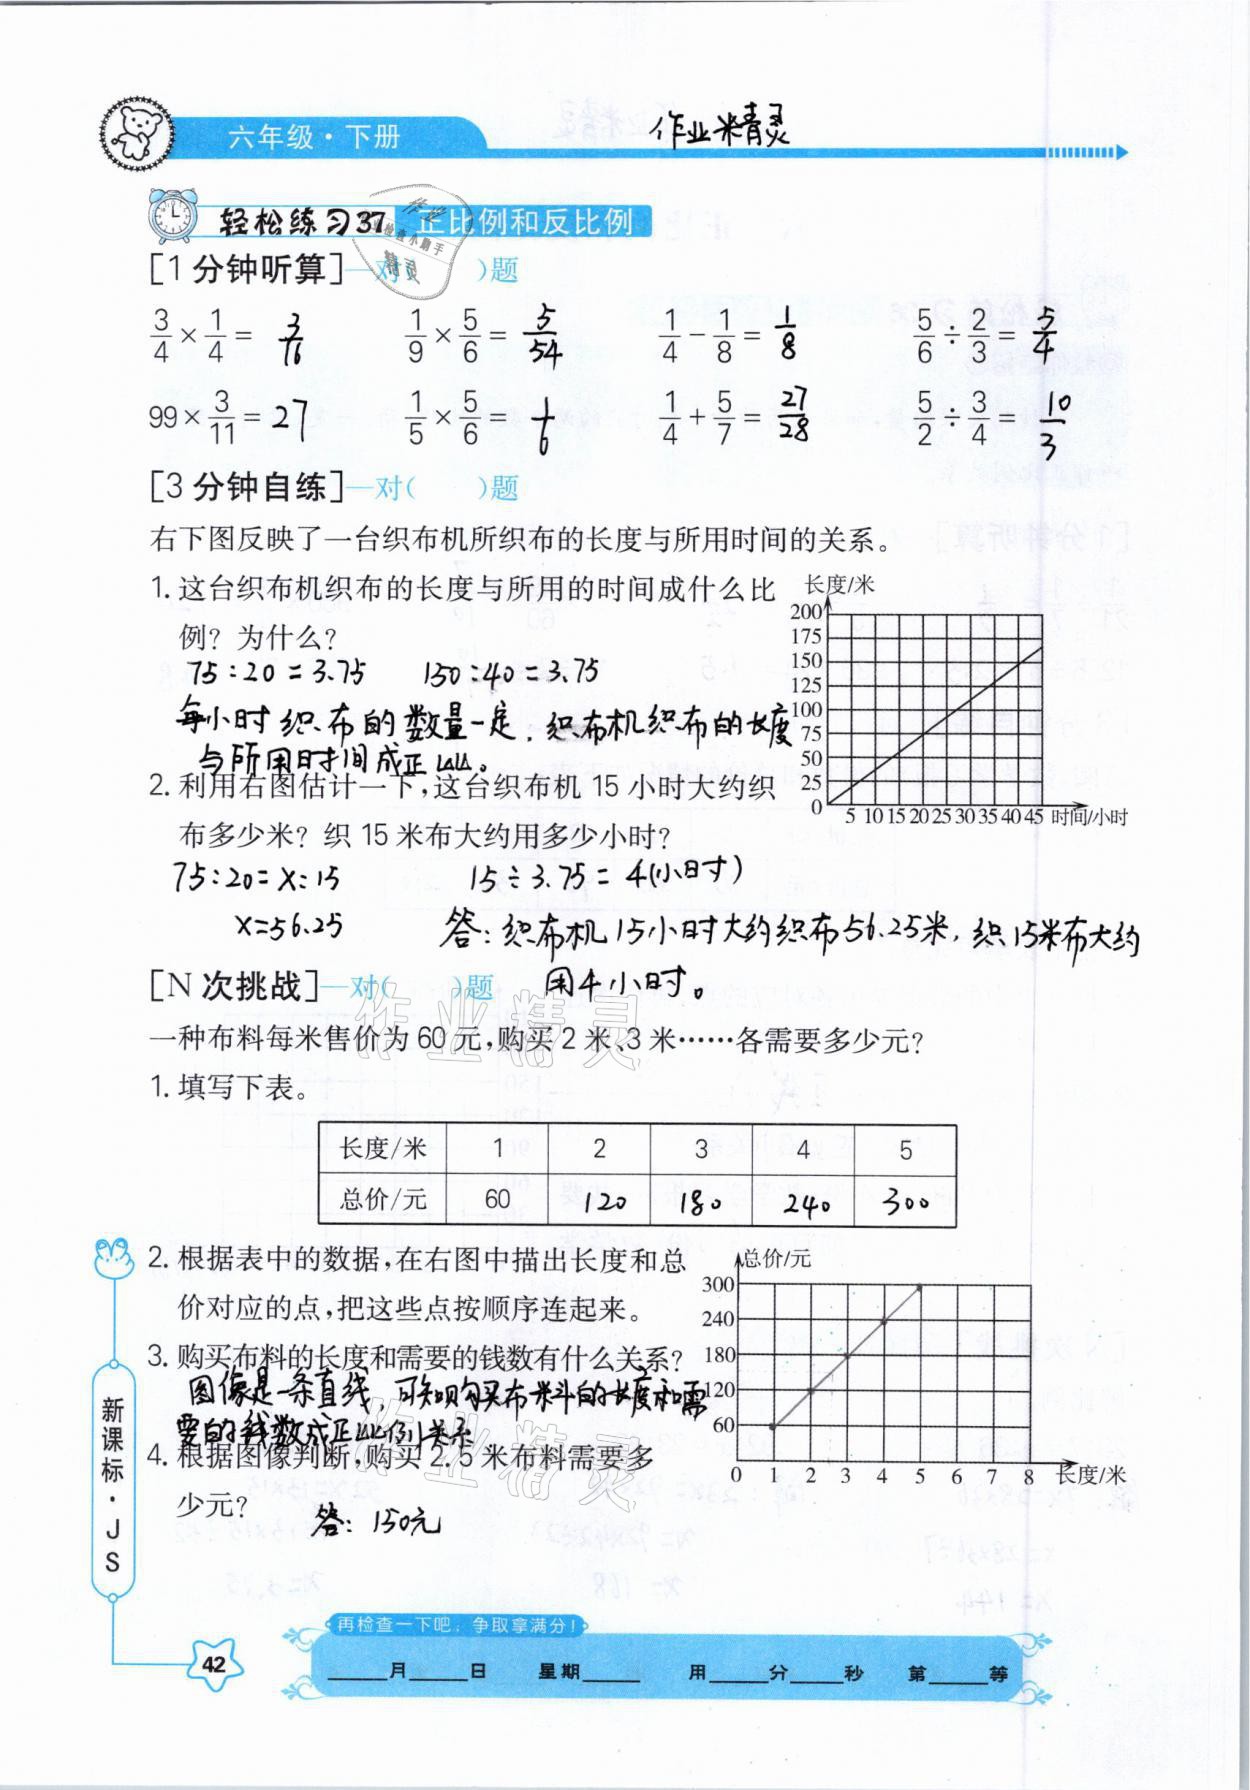 六年级·下册
作业精灵
轻松练习37 正比例和反比例
作业
检查小助手
精灵
[1分钟听算]—对( )题
3/4 × 1/4 = 3/16 1/9 × 5/6 = 5/54 1/4 - 1/8 = 1/8 5/6 ÷ 2/3 = 5/4
99 × 3/11 = 27 1/5 × 5/6 = 1/6 1/4 + 5/7 = 27/28 5/2 ÷ 3/4 = 10/3
[3分钟自练]—对( )题
右下图反映了一台织布机所织布的长度与所用时间的关系。
1. 这台织布机织布的长度与所用的时间成什么比
例？为什么？
75:20=3.75 150:40=3.75
每小时织布的数量一定，织布机织布的长度
与所用时间成正比。
长度/米
200
175
150
125
100
75
50
25
0 5 10 15 20 25 30 35 40 45 时间/小时
2. 利用右图估计一下，这台织布机 15 小时大约织
布多少米？织 15 米布大约用多少小时？
75:20=x:15 15÷3.75=4(小时)
x=56.25 答：织布机15小时大约织布56.25米，织15米布大约
用4小时。
[N次挑战]—对( )题
作业精灵
一种布料每米售价为 60 元，购买 2 米、3 米……各需要多少元？
1. 填写下表。
长度/米 1 2 3 4 5
总价/元 60 120 180 240 300
2. 根据表中的数据，在右图中描出长度和总
价对应的点，把这些点按顺序连起来。
3. 购买布料的长度和需要的钱数有什么关系？
图像是一条直线，可知购买布料的长度和需
要的钱数成正比例关系
作业精灵
4. 根据图像判断，购买 2.5 米布料需要多
少元？
答：150元
总价/元
300
240
180
120
60
0 1 2 3 4 5 6 7 8 长度/米
新课标·JS
42
再检查一下吧，争取拿满分！
____月____日 星期____ 用____分____秒 第____等